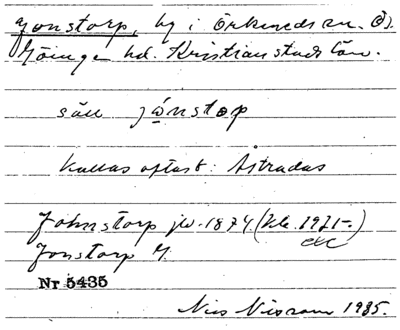 Jonstorp, by i Örkeneds sn. Ö.
Göinge hd. Kristianstads län.
säll jònstɷp
Kallas oftast: Åstradas
Johnstorp jb. 1874. (kb. 1971-.)
etc
Jonstorp
Nr 5435
1935.